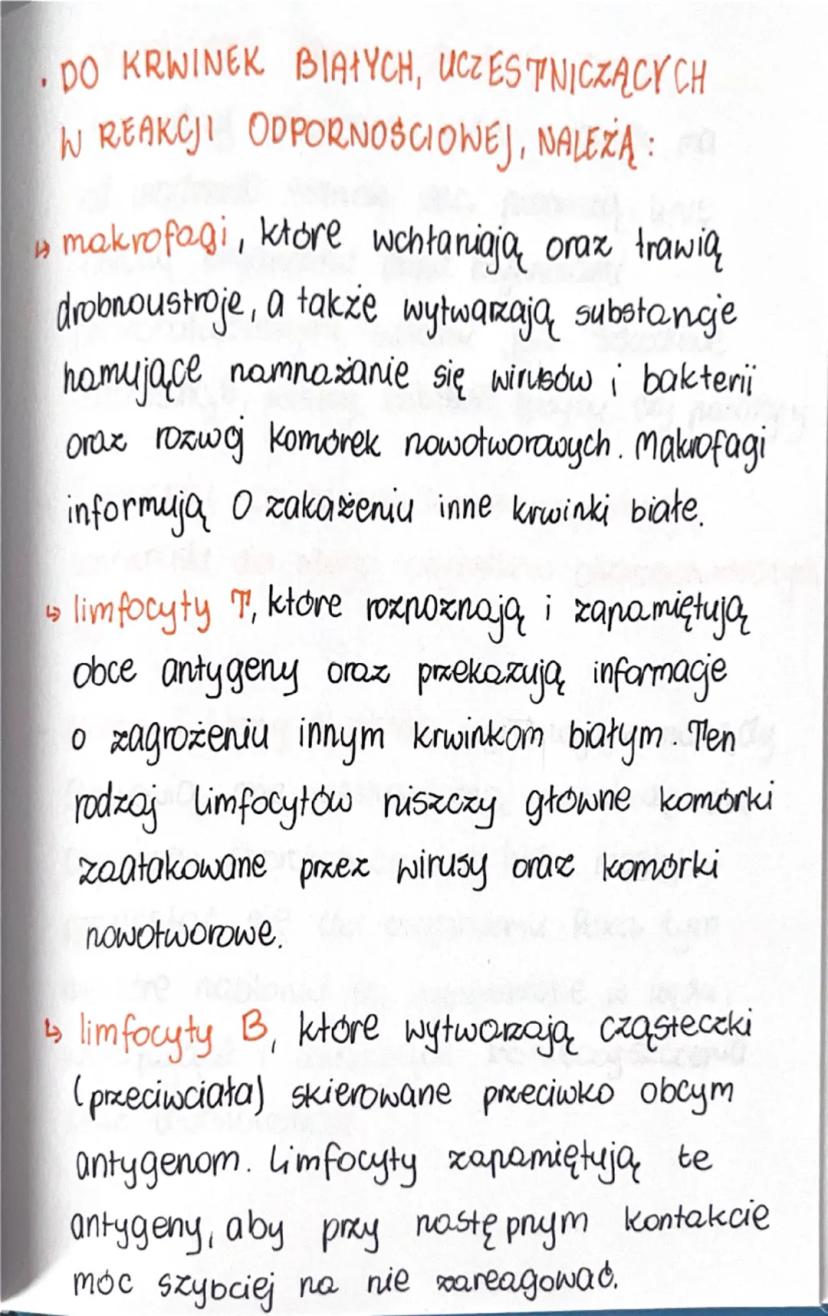 • DO KRWINEK BIAŁYCH, UCZESTNICZĄCYCH
W REAKCJI ODPORNOŚCIOWEJ, NALEŻĄ:
↳ makrofagi, które wchłaniają oraz trawią
drobnoustroje, a także wytwarzają substancje
hamujące namnażanie się wirusów i bakterii
oraz rozwój komórek nowotworowych. Makrofagi
informują o zakażeniu inne krwinki białe.
↳ limfocyty T, które rozpoznają i zapamiętują
obce antygeny oraz przekazują informacje
o zagrożeniu innym krwinkom białym. Ten
rodzaj limfocytów niszczy główne komórki
zaatakowane przez wirusy oraz komórki
nowotworowe.
↳ limfocyty B, które wytwarzają cząsteczki
(przeciwciała) skierowane przeciwko obcym
antygenom. Limfocyty zapamiętują te
antygeny, aby przy następnym kontakcie
móc szybciej na nie zareagować.